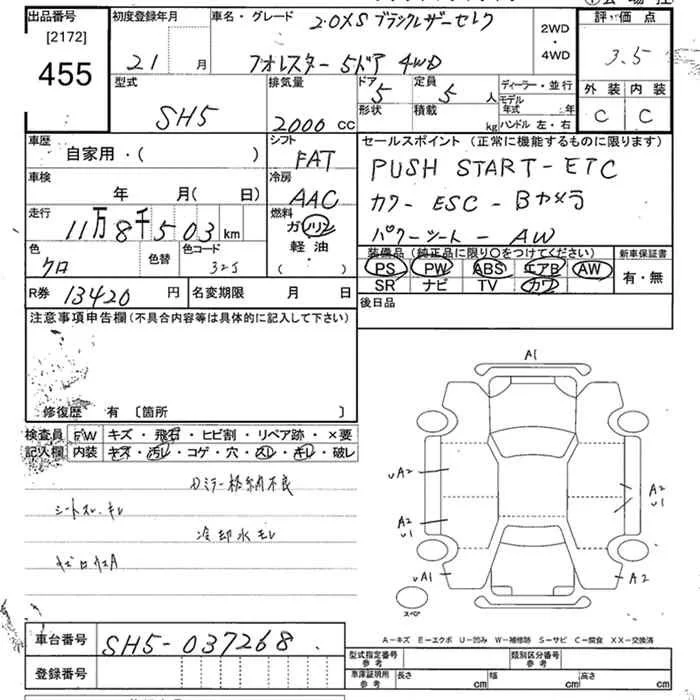 出品番号
[2172]
455
初度登録年月
21 月
車名・グレード
2.0XS ブラックレザーセレク
フォレスター 5ドア 4WD
2WD
・
4WD
評価点
3.5
外装 内装
C C
型式
SH5
排気量
2000 cc
ドア
5
形状
定員
5 人
積載
kg
ディーラー・並行
モデル
年式 年
ハンドル 左・右
車歴
自家用・( )
シフト
FAT
車検
年 月( 日)
冷房
AAC
走行
11万8千503km
燃料
ガソリン
軽油
・
( )
色
クロ
色替
色コード
32J
セールスポイント (正常に機能するものに限ります)
PUSH START - ETC
カワ - ESC - Bカメラ
パワーシート - AW
装備品 (純正品に限り○をつけてください)
PS PW ABS エアB AW
SR ナビ TV カワ
新車保証書
有・無
R券 13420 円
名変期限 月 日
後日品
注意事項申告欄 (不具合内容等は具体的に記入して下さい)
修復歴 有 〔箇所 〕
検査員
記入欄
FW キズ・飛石・ヒビ割・リペア跡・×要
内装 キズ・汚レ・コゲ・穴・スレ・キレ・破レ
Dミラー格納不良
シートスレ、キレ
冷却水モレ
A1
UA2
A2
U1
UA1
A2
U1
A2
スペア
A－キズ E－エクボ U－凹み W－補修跡 S－サビ C－腐食 XX－交換済
車台番号 SH5-037268
登録番号
型式指定番号
参考
類別区分番号
参考
車庫証明用
参考
長さ cm 幅 cm 高さ cm